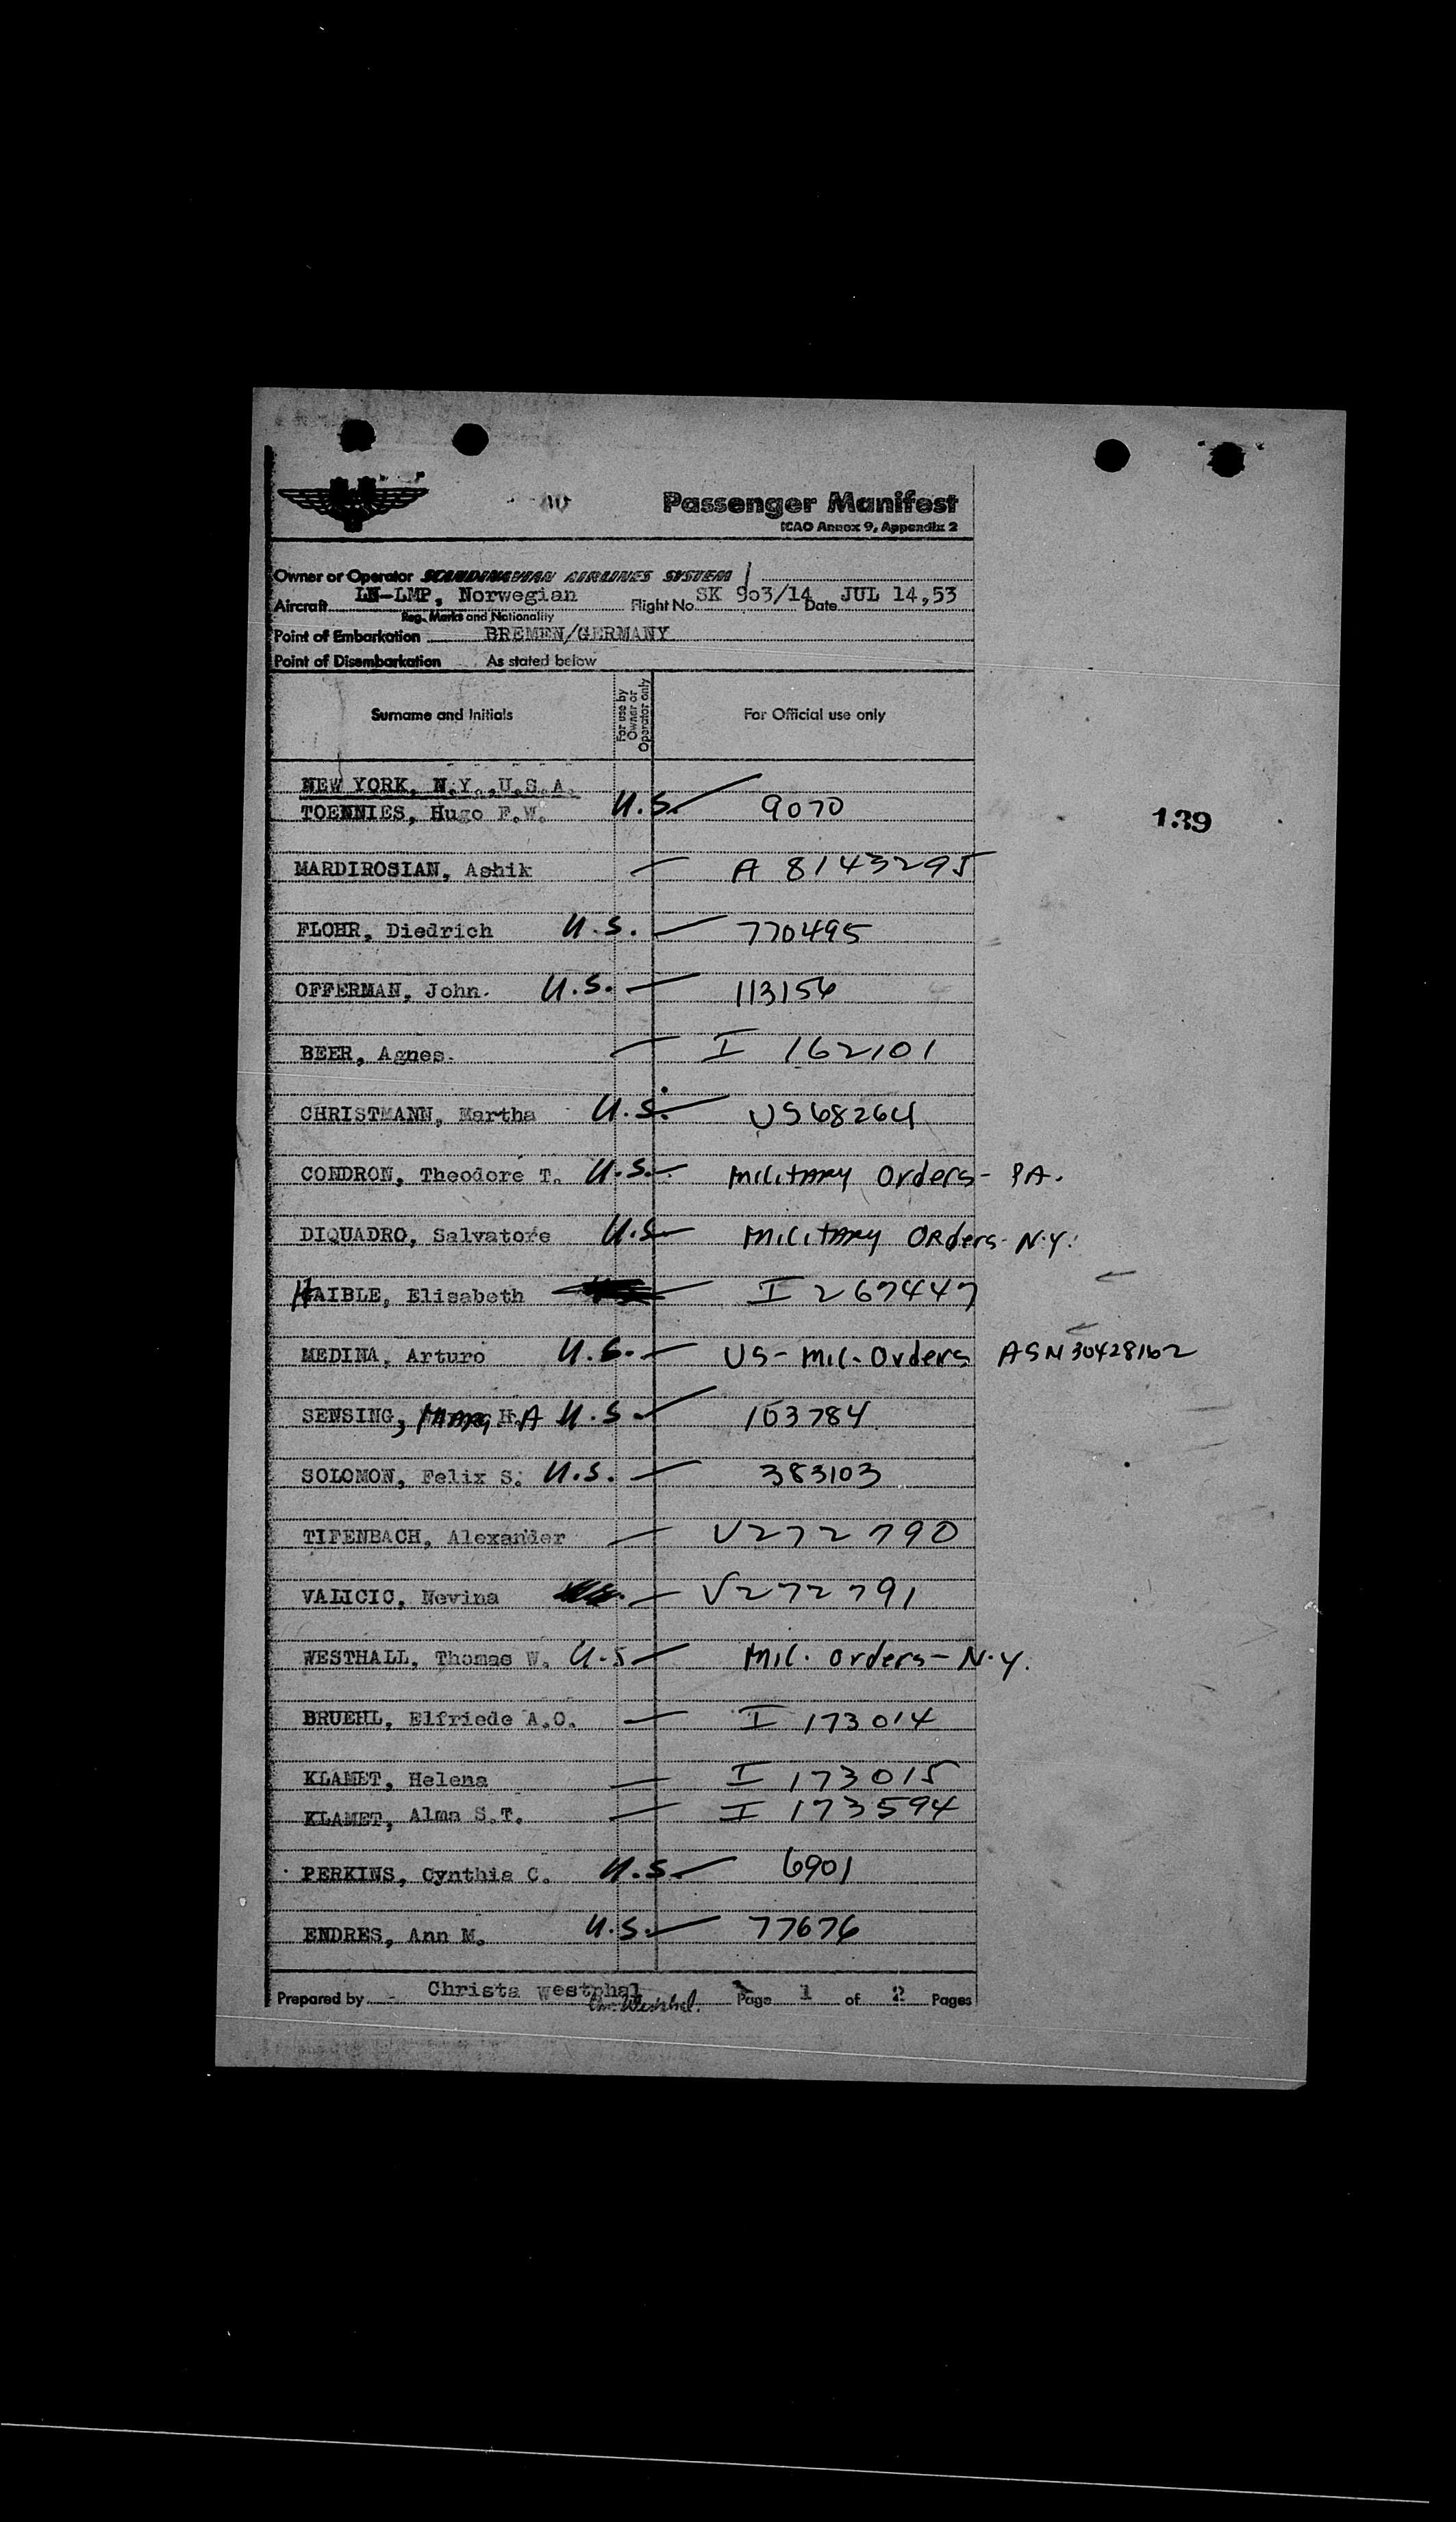 Passenger Manifest
ICAO Annex 9, Appendix 2
Owner or Operator SCANDINAVIAN AIRLINES SYSTEM
Aircraft LN-LMP, Norwegian Flight No. SK 903/14 Date JUL 14,53
Reg. Marks and Nationality
Point of Embarkation BREMEN/GERMANY
Point of Disembarkation As stated below
Surname and Initials For use by Owner or Operator only For Official use only
NEW YORK, N.Y.,U.S.A.
TOENNIES, Hugo F.W. U.S. 9070
139
MARDIROSIAN, Ashik A 8143295
FLOHR, Diedrich U.S. 770495
OFFERMAN, John. U.S. 113156
BEER, Agnes. I 162101
CHRISTMANN, Martha U.S. US68264
CONDRON, Theodore T. U.S. Military Orders - PA.
DIQUADRO, Salvatore U.S. Military Orders - N.Y.
HAIBLE, Elisabeth I 267447
MEDINA, Arturo U.S. US - Mil. Orders ASN 30428162
SENSING, H.A U.S. 103784
SOLOMON, Felix S. U.S. 383103
TIFENBACH, Alexander V272790
VALICIC, Nevina V272791
WESTHALL, Thomas W. U.S Mil. Orders - N.Y.
BRUEHL, Elfriede A.O. I 173014
KLAMET, Helena I 173015
KLAMET, Alma S.T. I 173594
PERKINS, Cynthia C. U.S. 6901
ENDRES, Ann M. U.S. 77676
Prepared by - Christa westphal Chr. Westphal. Page 1 of 2 Pages